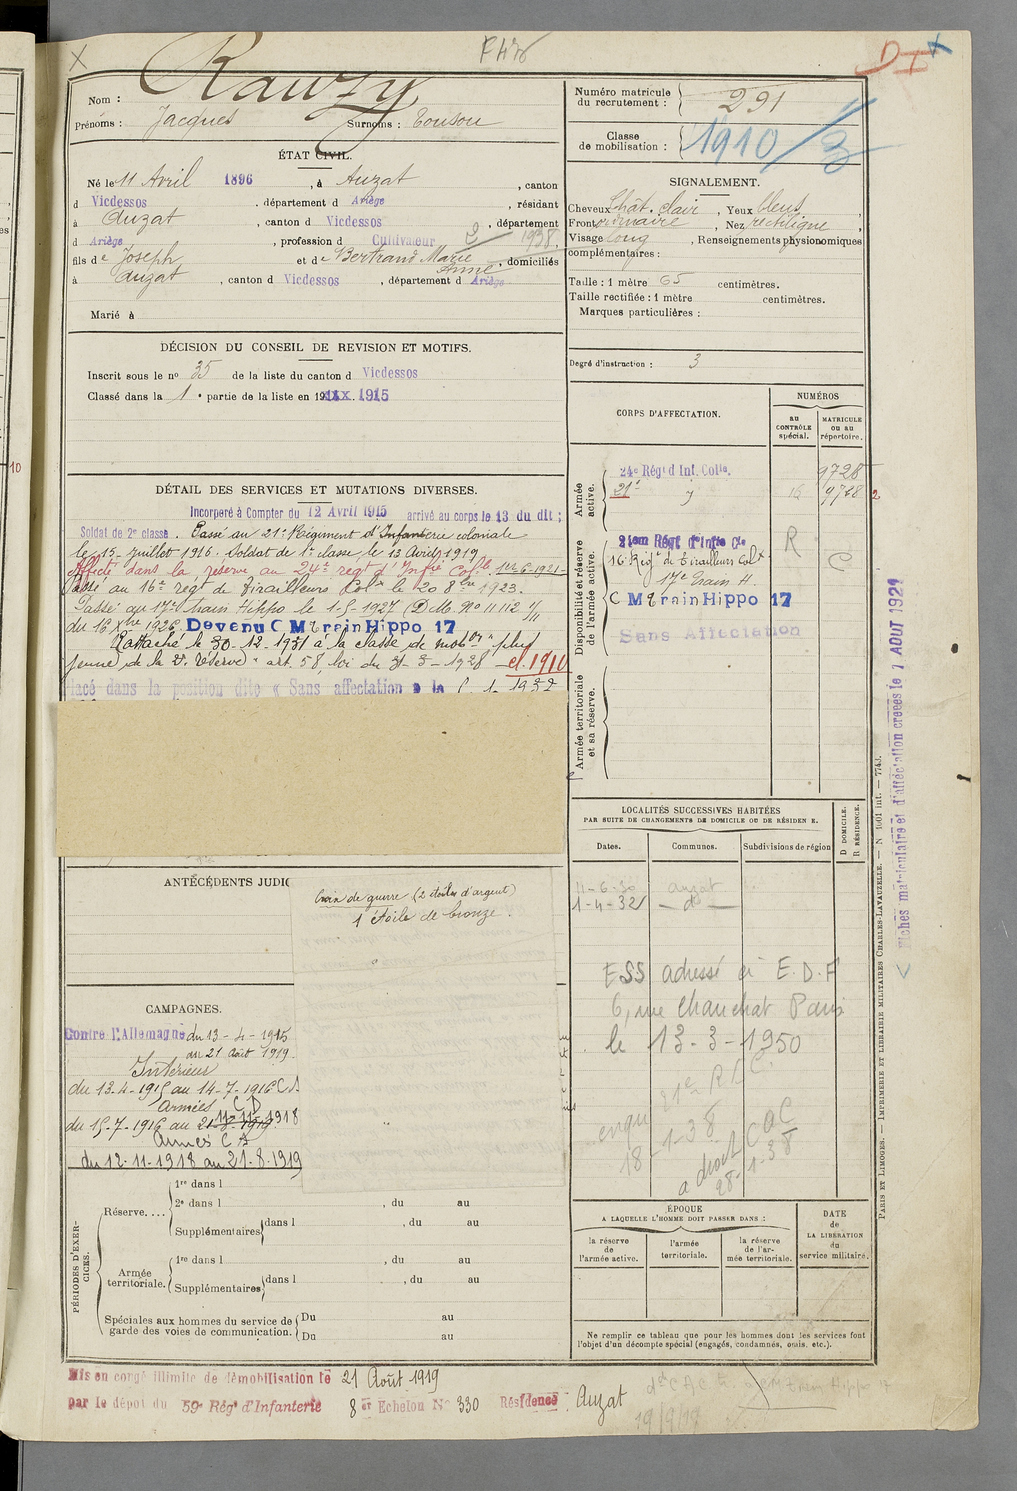 Rauzy
Nom :
Prénoms : Jacques Surnoms : Tonson
ÉTAT CIVIL.
Né le 11 Avril 1896, à Auzat, canton
d Vicdessos, département d Ariège, résidant
à Auzat, canton d Vicdessos, département
d Ariège, profession d Cultivateur 2 1938.
fils de Joseph et de Bertrand Marie Anne, domiciliés
à Auzat, canton d Vicdessos, département d Ariège
Marié à
DÉCISION DU CONSEIL DE REVISION ET MOTIFS.
Inscrit sous le no 35 de la liste du canton d Vicdessos
Classé dans la 1 e partie de la liste en 19xxx. 1915
DÉTAIL DES SERVICES ET MUTATIONS DIVERSES.
Incorporé à Compter du 12 Avril 1915 arrivé au corps le 13 du dit ;
Soldat de 2e classe. Passé au 21e Régiment d'Infanterie coloniale
le 15 Juillet 1916. Soldat de 1e classe le 13 Avril 1919
Affecté dans la réserve au 24e regt d'Infie Colle 1er-6-1921
Passé au 16e regt de Tirailleurs Colx le 20 8bre 1923.
Passé au 17e Train Hippo le 1-5-1927 (D.M. No 11112 1/11
du 16 Xbre 1926. Devenu C M train Hippo 17
Rattaché le 30-12-1931 à la classe de mobon plus
jeune de la 2e Réserve art. 58, loi du 31-3-1928 cl. 1910
Placé dans la position dite « Sans affectation » le
ANTÉCÉDENTS JUDIC
Croix de guerre (2 étoiles d'argent)
1 étoile de bronze.
CAMPAGNES.
Contre l'Allemagne du 13-4-1915
au 21 Août 1919.
Intérieur
du 13-4-1915 au 14-7-1916 C.S.
Armées C D
du 15-7-1916 au 21-8-1919 11-11-1918
Armées C S
du 12-11-1918 au 21-8-1919
PÉRIODES D'EXERCICES.
Réserve....
1re dans l
2e dans l , du au
Supplémentaires dans l , du au
Armée territoriale.
1re dans l , du au
Supplémentaires dans l , du au
Spéciales aux hommes du service de garde des voies de communication.
Du au
Du au
Mis en congé illimité de démobilisation le 21 Août 1919
par le dépôt du 59e Rég d'Infanterie 8er Echelon No 330 Résidence : Auzat
Numéro matricule du recrutement : 291
Classe de mobilisation : 1910/3
SIGNALEMENT.
Cheveux Chât. clair, Yeux bleus,
Front ordinaire, Nez rectiligne,
Visage long, Renseignements physionomiques
complémentaires :
Taille : 1 mètre 65 centimètres.
Taille rectifiée : 1 mètre centimètres.
Marques particulières :
Degré d'instruction : 3
CORPS D'AFFECTATION.
NUMÉROS
au CONTRÔLE spécial.
MATRICULE ou au répertoire.
Armée active.
24e Régt d Inf. Colle. 9728
21e 9728 2
Disponibilité et réserve de l'armée active.
21em Régt d'Infie Cle R
16e Régt de Tirailleurs Colx C
17e Train H.
C M train Hippo 17
Sans Affectation
Armée territoriale et sa réserve.
LOCALITÉS SUCCESSIVES HABITÉES
PAR SUITE DE CHANGEMENTS DE DOMICILE OU DE RÉSIDENCE.
D DOMICILE.
R RÉSIDENCE.
Dates. Communes. Subdivisions de région
11-6-30 auzat
1-4-32 — do —
ESS adressé à E.D.F
6, rue Chauchat Paris
le 13-3-1950
18-1-38
28-1-38
ÉPOQUE
A LAQUELLE L'HOMME DOIT PASSER DANS :
la réserve de l'armée active.
l'armée territoriale.
la réserve de l'armée territoriale.
DATE de LA LIBÉRATION du service militaire.
Ne remplir ce tableau que pour les hommes dont les services font
l'objet d'un décompte spécial (engagés, condamnés, omis, etc.).
19/9/18
Fiches matriculaire et d'affectation créées le 7 AOUT 1929
PARIS ET LIMOGES. — IMPRIMERIE ET LIBRAIRIE MILITAIRES CHARLES-LAVAUZELLE. — N 1001 int. — 7743.
10